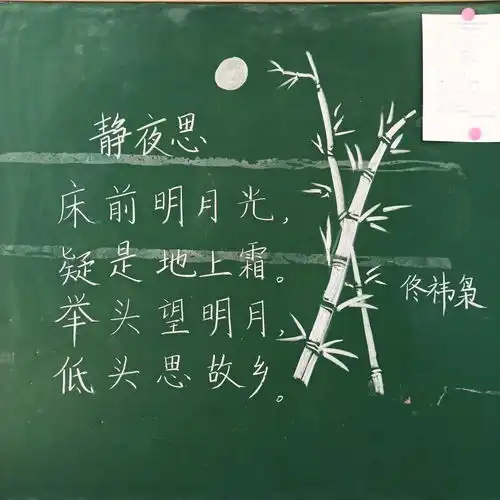 静夜思
床前明月光，
疑是地上霜。
举头望明月，
低头思故乡。
佟祎枭